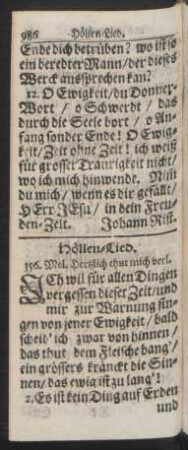 986 Höllen-Lied.
Ende dich betrüben? wo ist so
ein beredter Mann/der dieses
Werck aussprechen kan?
12. O Ewigkeit/du Donner-
Wort / o Schwerdt / das
durch die Seele bort / o An-
fang sonder Ende! O Ewig-
keit/Zeit ohne Zeit! ich weiß
für grosser Traurigkeit nicht/
wo ich mich hinwende. Nim
du mich/ wenn es dir gefällt/
HErr JEsu / in dein Freu-
den-Zelt. Johann Rist.
Höllen-Lied.
356. Mel. Hertzlich thut mich verl.
JCh wil für allen Dingen
vergessen dieser Zeit/und
mir zur Warnung sin-
gen von jener Ewigkeit/bald
scheid' ich zwar von hinnen/
das thut dem Fleische bang'/
ein grössers kränckt die Sin-
nen/das ewig ist zu lang'!
2. Es ist kein Ding auf Erden
und